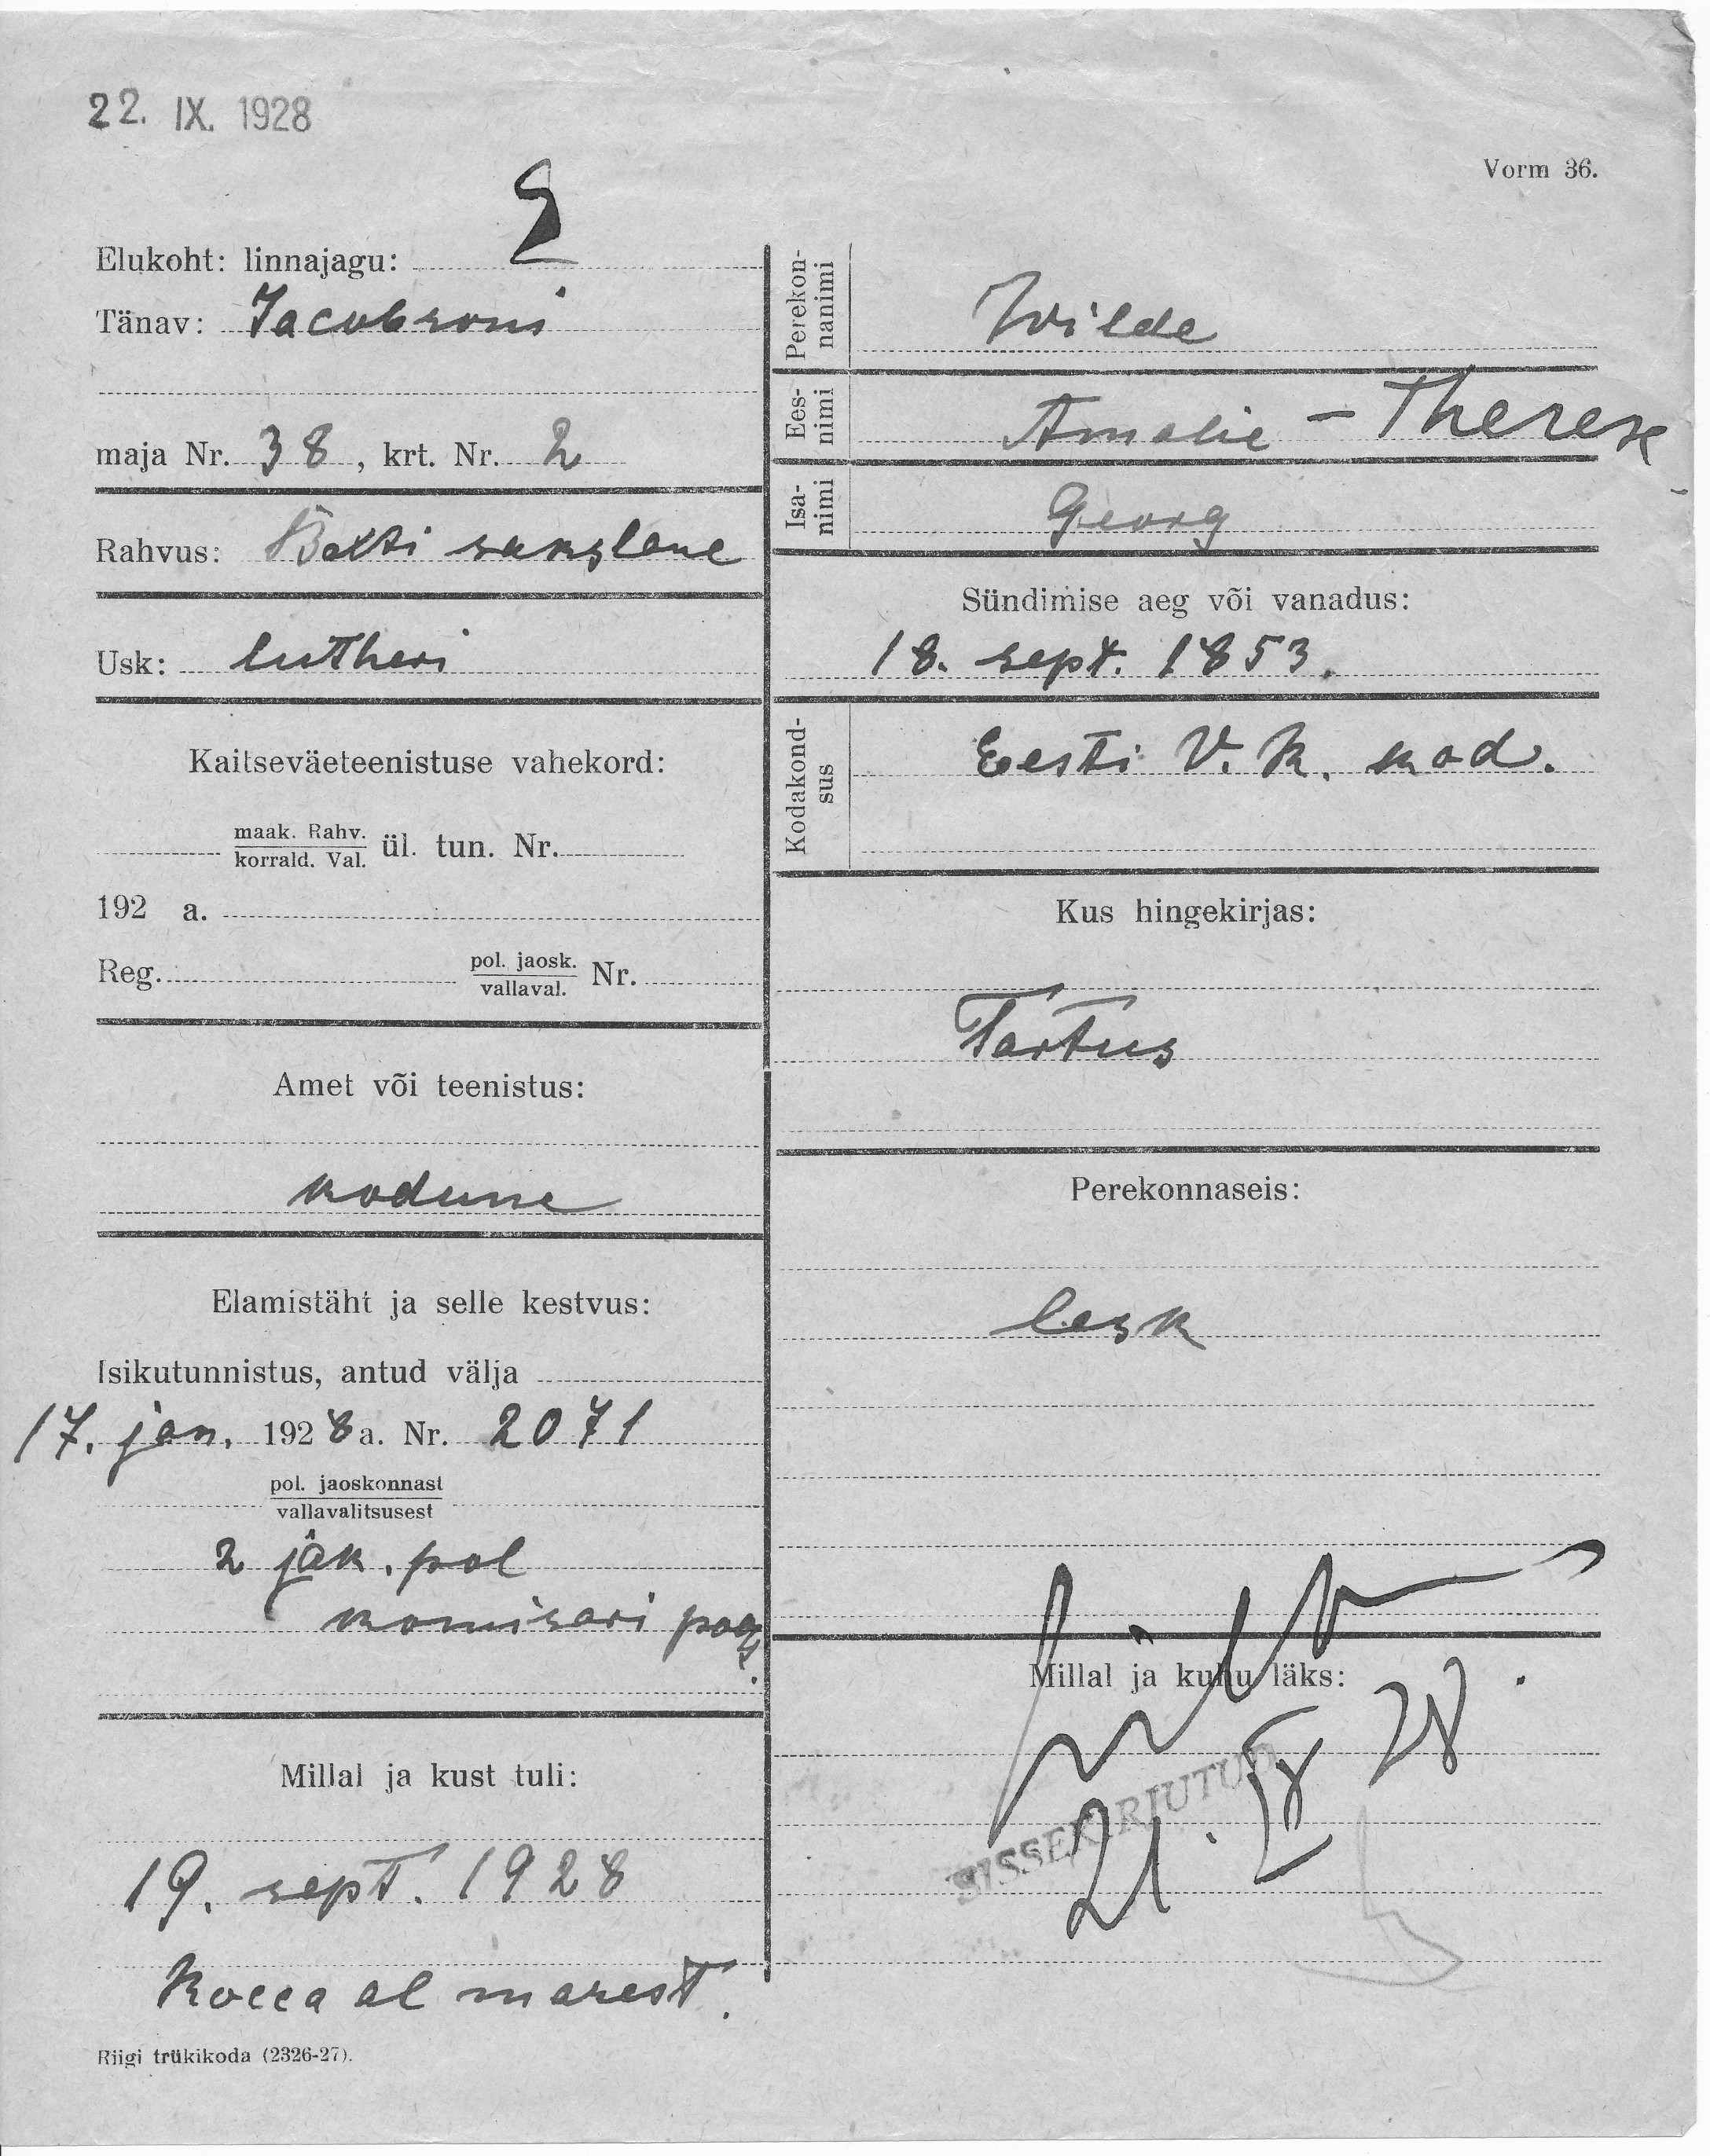 22. IX. 1928
Vorm 36.
Elukoht: linnajagu: 2
Tänav: Jacobsoni
maja Nr. 38, krt. Nr. 2
Rahvus: Balti sakslane
Usk: lutheri
Kaitseväeteenistuse vahekord:
maak. Rahv.
korrald. Val. ül. tun. Nr.
192 a.
Reg. pol. jaosk. Nr.
vallaval.
Amet või teenistus:
kodune
Elamistäht ja selle kestvus:
Isikutunnistus, antud välja
17. jan. 1928 a. Nr. 2071
pol. jaoskonnast
vallavalitsusest
2 jäk. pol
komisari poolt.
Millal ja kust tuli:
19. sept. 1928
Rocca al marest.
Riigi trükikoda (2326-27).
Perekon-
nanimi
Wilde
Ees-
nimi
Amalie - Therese
Isa-
nimi
Georg
Sündimise aeg või vanadus:
18. sept. 1853.
Kodakond-
sus
Eesti V. K. kod.
Kus hingekirjas:
Tartus
Perekonnaseis:
lesk
Millal ja kuhu läks:
SISSEKIRJUTUD
21. IX 28.